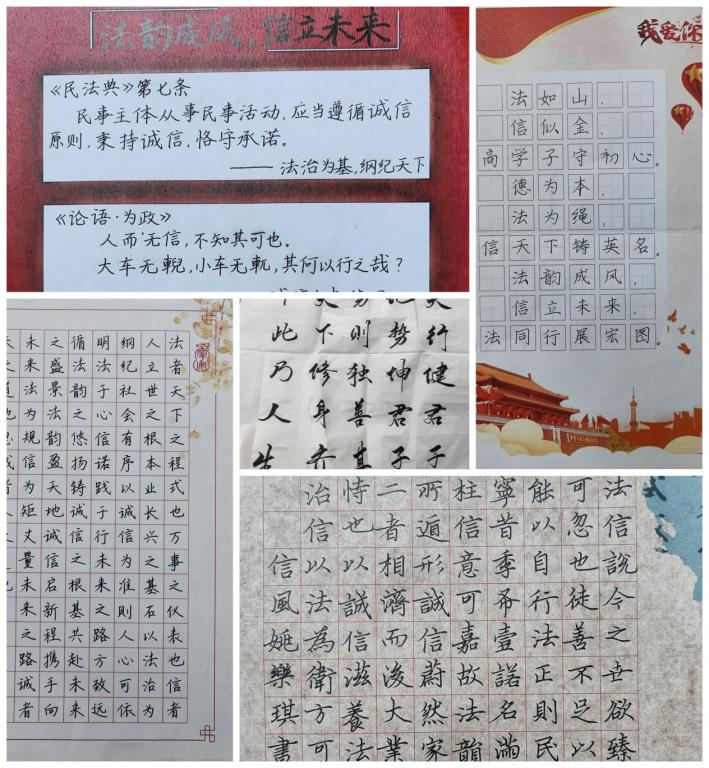 法韵成风，信立未来
《民法典》第七条
民事主体从事民事活动，应当遵循诚信
原则，秉持诚信，恪守承诺。
——法治为基，纲纪天下
《论语·为政》
人而无信，不知其可也。
大车无輗，小车无軏，其何以行之哉？
我爱你
法如山，
信似金，
商学子守初心。
德为本，
法为绳，
信天下铸英名。
法韵成风，
信立未来，
法同行展宏图。
法者天下之程式也万事之仪表也信者
人立世之根本业长兴之基石以法治为
纲纪社会有序以诚信为准则人心可依
明法于心信诺践于行未来之路方致远
循法韵之悠扬铸诚信之根基共赴未来
之盛景法韵盈天地诚信启新程携手向
未来法为规信为矩丈量未来之路诚者
行健君子
势坤君子
则独善其
下修身齐
此乃人生
法信說今之世欲臻
可忽也徒善不足以
能以自行法正則民
寧昔季布壹諾名滿
柱信意可嘉故法韻
所遁形誠信蔚然家
二者相濟而浚大業
恃也以誠信滋養法
治信以法為衛方可
信風姚樂琪書